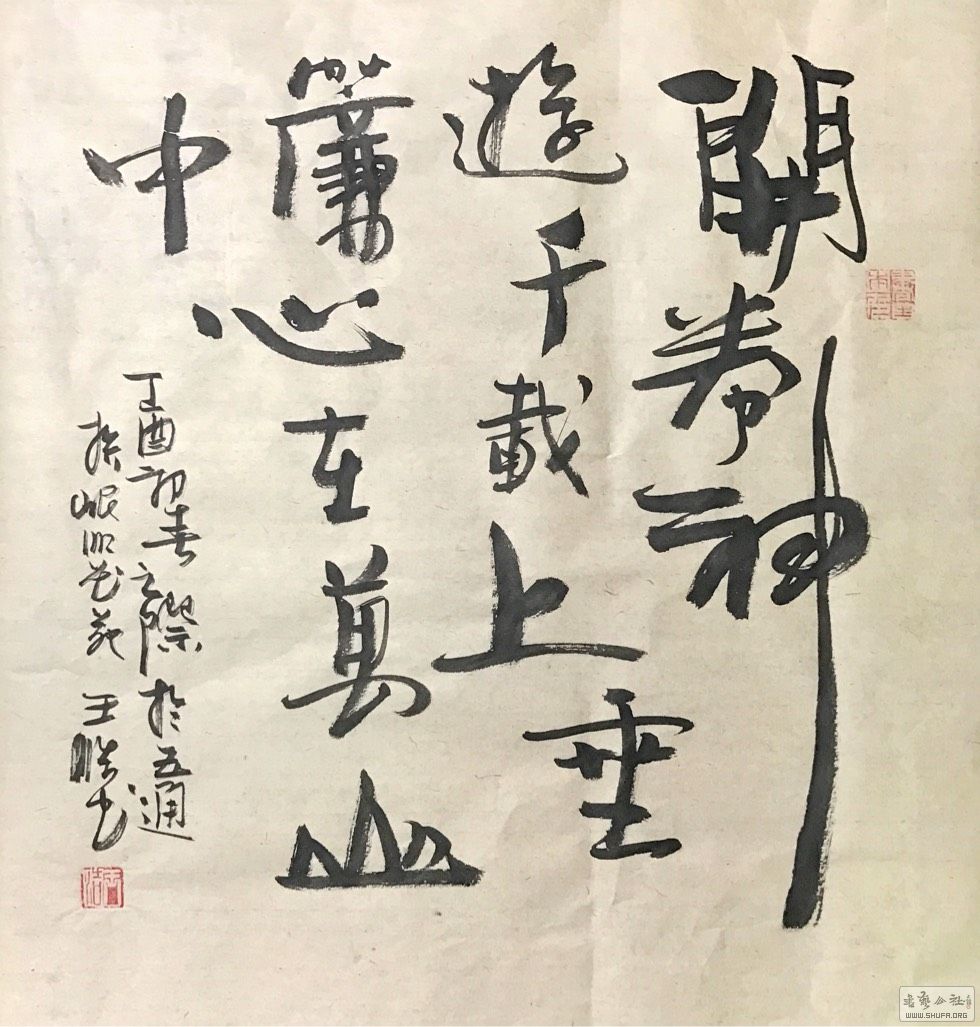 開卷神
遊千載上垂
簾心在萬山
中
丁酉初春之際於五通
岷 苑 王 书
書藝公社
WWW.SHUFA.ORG